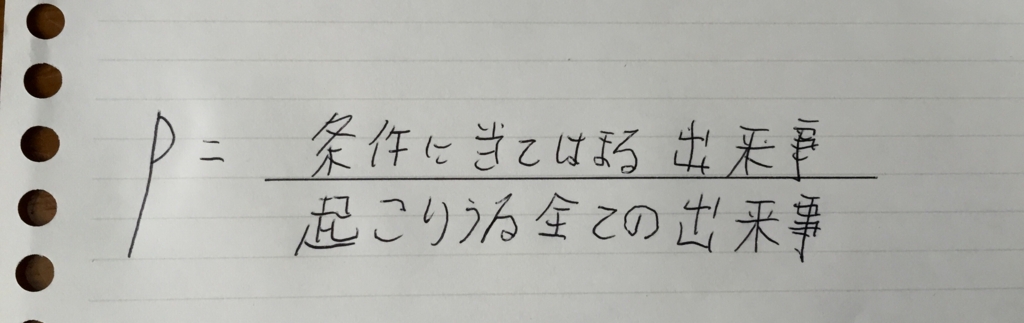 P = 条件に当てはまる出来事
起こりうる全ての出来事